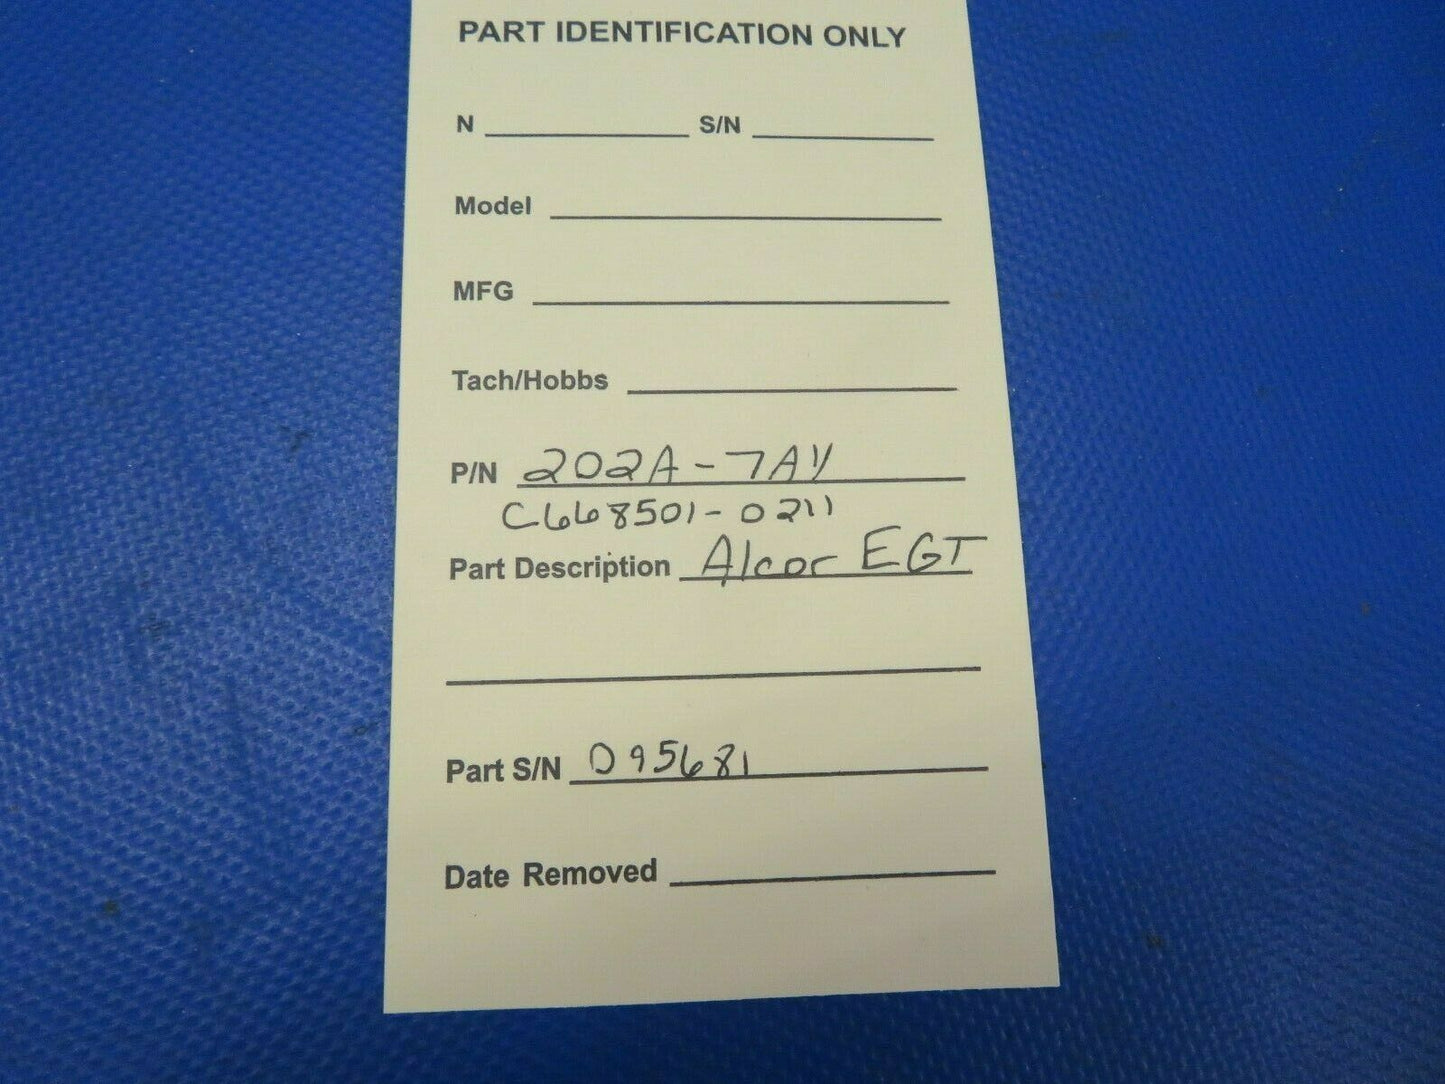 PART IDENTIFICATION ONLY
N S/N
Model
MFG
Tach/Hobbs
P/N 202A-7AY
C668501-0211
Part Description Alcor EGT
Part S/N 095681
Date Removed